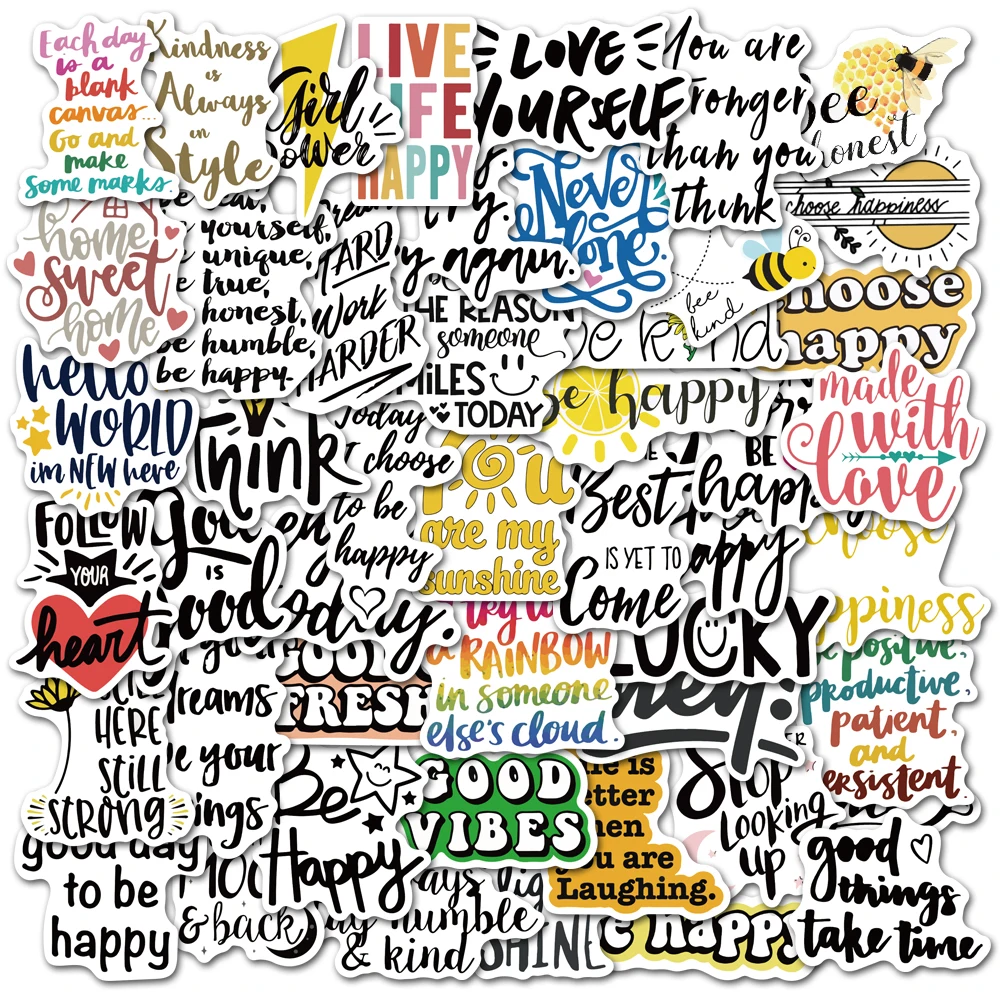 Each day
is a
blank
canvas...
Go and
make
some marks.
Kindness
is
Always
in
Style
Girl
Power
LIVE
LIFE
HAPPY
LOVE
YOURSELF
You are
ronger
than you
think
Bee
honest
choose happiness
home
sweet
home
yourself,
unique,
true,
honest,
be humble,
be happy.
HARD
WORK
HARDER
try.
try again.
Never
Alone.
bee
kind
be kind
choose
happy
THE REASON
someone
SMILES
TODAY
be happy
made
with
love
hello
WORLD
im NEW here
Think
Today
I choose
to be
happy
You
are my
sunshine
THE
Best
IS YET TO
Come
BE
happy
happy
choose
happiness
FOLLOW
YOUR
heart
IS
good
today.
try to
a RAINBOW
in someone
else's cloud.
LUCKY
hey!
be positive,
productive,
patient,
and
persistent.
STILL
HERE
STILL
STRONG
dreams
be your
wings
FRESH
Be
Happy
GOOD
VIBES
is
better
when
you are
Laughing.
STOP
LOOKING
UP
good
things
take time
good day
to be
happy
& back
humble
& kind
SHINE
be happy